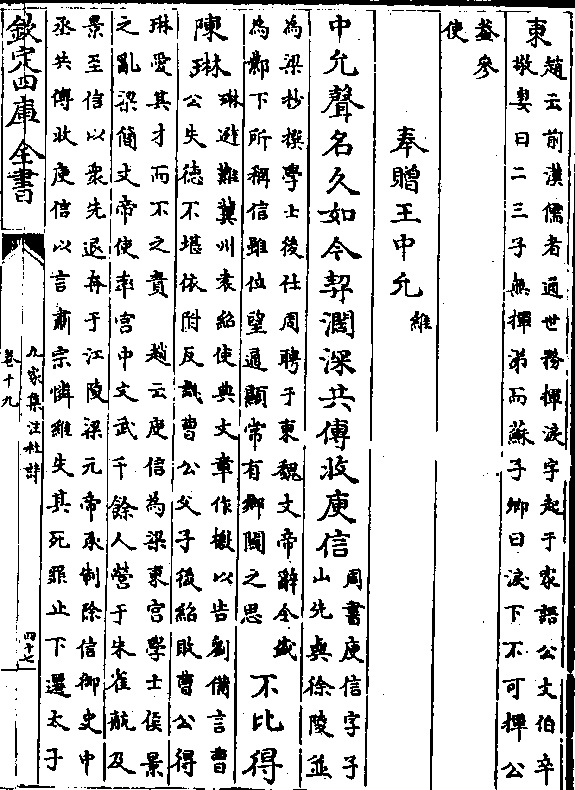 東
趙云前漢儒者通世務揮淚字起于家語公文伯卒
敬姜曰二三子無揮弟而蘇子卿曰淚下不可揮公
蓋參
使
奉贈王中允維
中允聲名久如今契濶深共傳收庾信
周書庾信字子
山先與徐陵並
為梁抄撰學士後仕周聘于東魏文帝辭令盛
為鄴下所稱信雖位望通顯常有鄉關之思
不比得
陳琳
琳避難冀州袁紹使典文章作檄以告劉備言曹
公失徳不堪依附反譏曹公父子後紹敗曹公得
琳愛其才而不之責 趙云庾信為梁東宫學士侯景
之亂梁簡文帝使率宫中文武千餘人營于朱雀航及
景至信以衆先退奔于江陵梁元帝承制除信御史中
丞共傳收庾信以言肅宗憐維失其死罪止下遷太子
欽定四庫全書
九家集注杜詩
卷十九
四十七